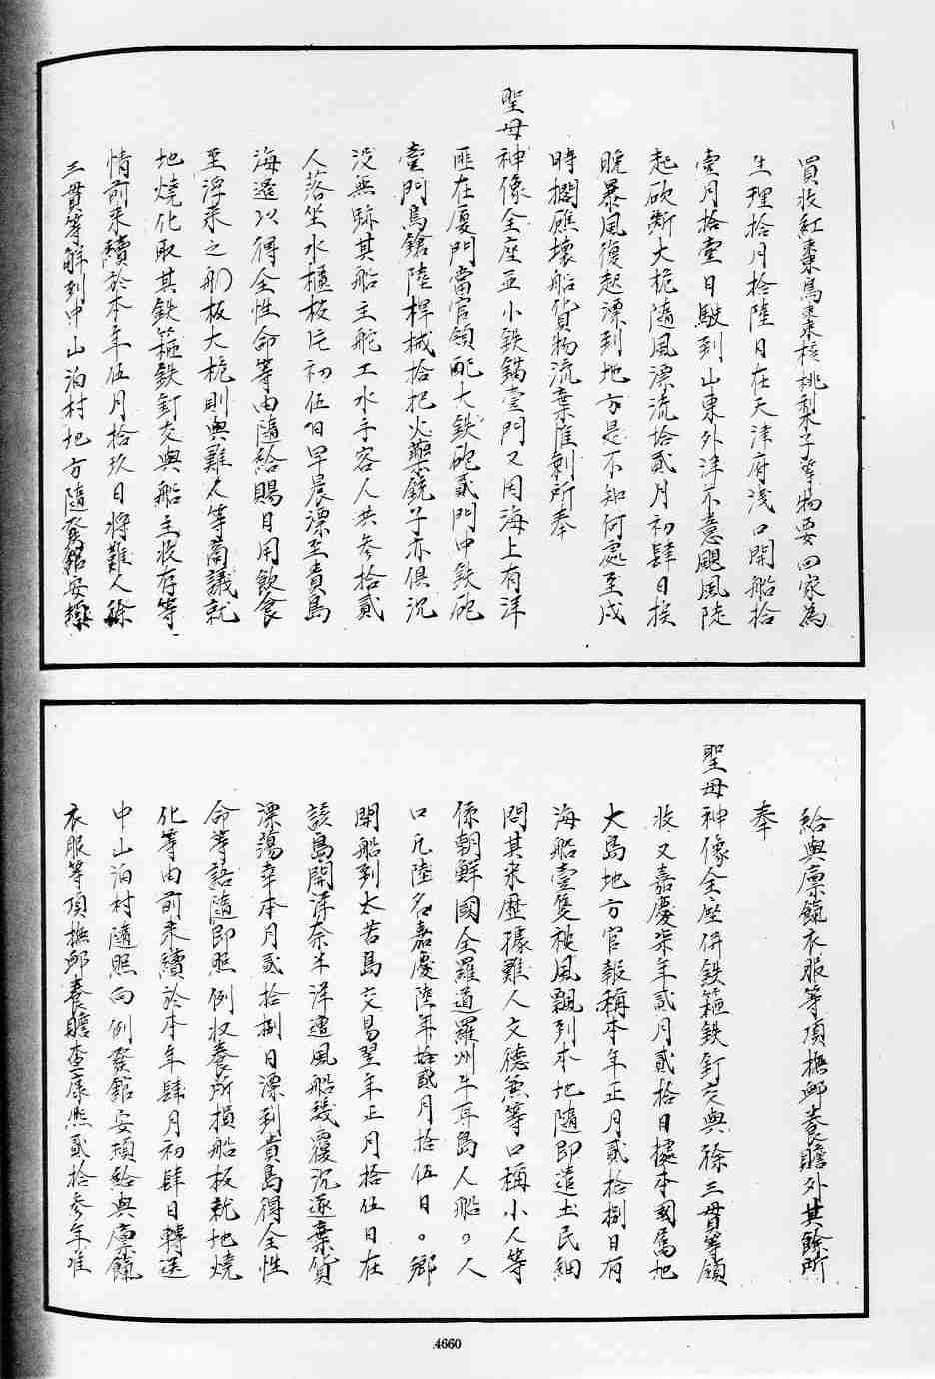 買收紅棗烏棗核桃梨子等物要回家為
生理拾月拾陸日在天津府淺口開船拾
壹月拾壹日駛到山東外洋不意颶風陡
起砍斷大桅隨風漂流拾貳月初肆日挨
晚暴風復起漂到地方是不知何處至戌
時擱礁壞船貨物流棄惟剩所奉
聖母神像全座並小鉄鍋壹門又因海上有洋
匪在廈門當官領配大鉄砲貳門中鉄砲
壹門鳥鎗陸桿械拾把火藥銃子亦俱沉
没無跡其船主舵工水手客人共參拾貳
人落坐水櫃板片初伍日早晨漂至貴島
海邊以得全性命等由隨給賜日用飲食
至浮來之舢板大桅則與難人等商議就
地燒化取其鉄箍鉄釘交與船主收存等
情前來續於本年伍月拾玖日將難人徐
三貫等解到中山泊村地方隨發館安插
給與廩餼衣服等項撫卹養贍外其餘所
奉
聖母神像全座併鉄箍鉄釘交與徐三貫等領
收又嘉慶柒年貳月貳拾日據本國属地
大島地方官報稱本年正月貳拾捌日有
海船壹隻被風飄到本地隨即遣土民細
問其来歴據難人文德兼等口稱小人等
係朝鮮國全羅道羅州牛耳島人船々人
口凡陸名嘉慶陸年拾貳月拾伍日。鄉
開船到太苔島交易翌年正月拾伍日在
該島開洋奈半洋遭風船幾覆沉逐棄貨
漂蕩幸本月貳拾捌日漂到貴島得全性
命等語隨即照例收養所損船板就地燒
化等由前来續於本年肆月初肆日轉送
中山泊村隨照向例發館安頓給與廩餼
衣服等項撫卹養贍查康熙貳拾參年准
4660